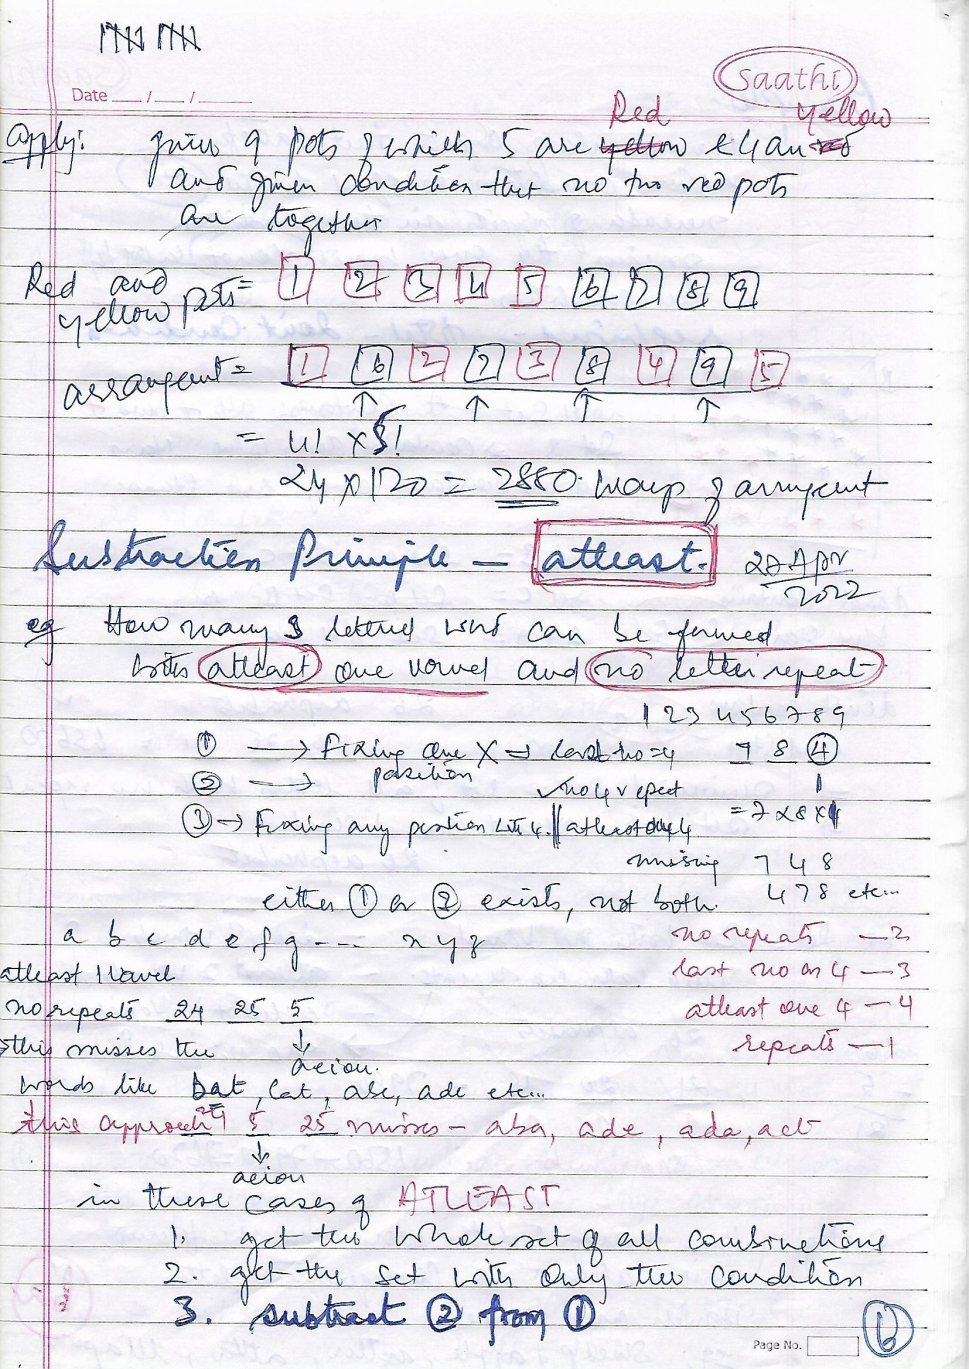 Saathi
Date ___/___/______
Red yellow
apply: given 9 pots of which 5 are yellow & 4 are red
and given condition that no two red pots
are together
Red and yellow pots = 1 2 3 4 5 6 7 8 9
arrangent = 1 6 2 7 3 8 4 9 5
↑ ↑ ↑ ↑
= 4! × 5!
24 × 120 = 2880 ways of arrangent
Subtraction Principle – atleast. 28 Apr 2022
eg How many 3 lettered word can be formed
with atleast one vowel and no letter repeat
1 2 3 4 5 6 7 8 9
① → Fixing one X → last no = 4 7 8 ④
② → position no 4 repeat 1
③ → Fixing any position with 4. || atleast one 4 = 7×8×1
missing 7 4 8
either ① or ② exists, not both. 4 7 8 etc...
a b c d e f g --- x y z no repeats — 2
atleast 1 vowel last no on 4 — 3
no repeats 24 25 5 atleast one 4 — 4
this misses the ↓ aeiou. repeats — 1
words like bat, cat, abc, ade etc...
this approach 24 5 25 misses – aba, ade, ada, act
↓
aeiou
in these cases of ATLEAST
1. get the whole set of all combinations
2. get the set with only the condition
3. subtract ② from ①
Page No. 6